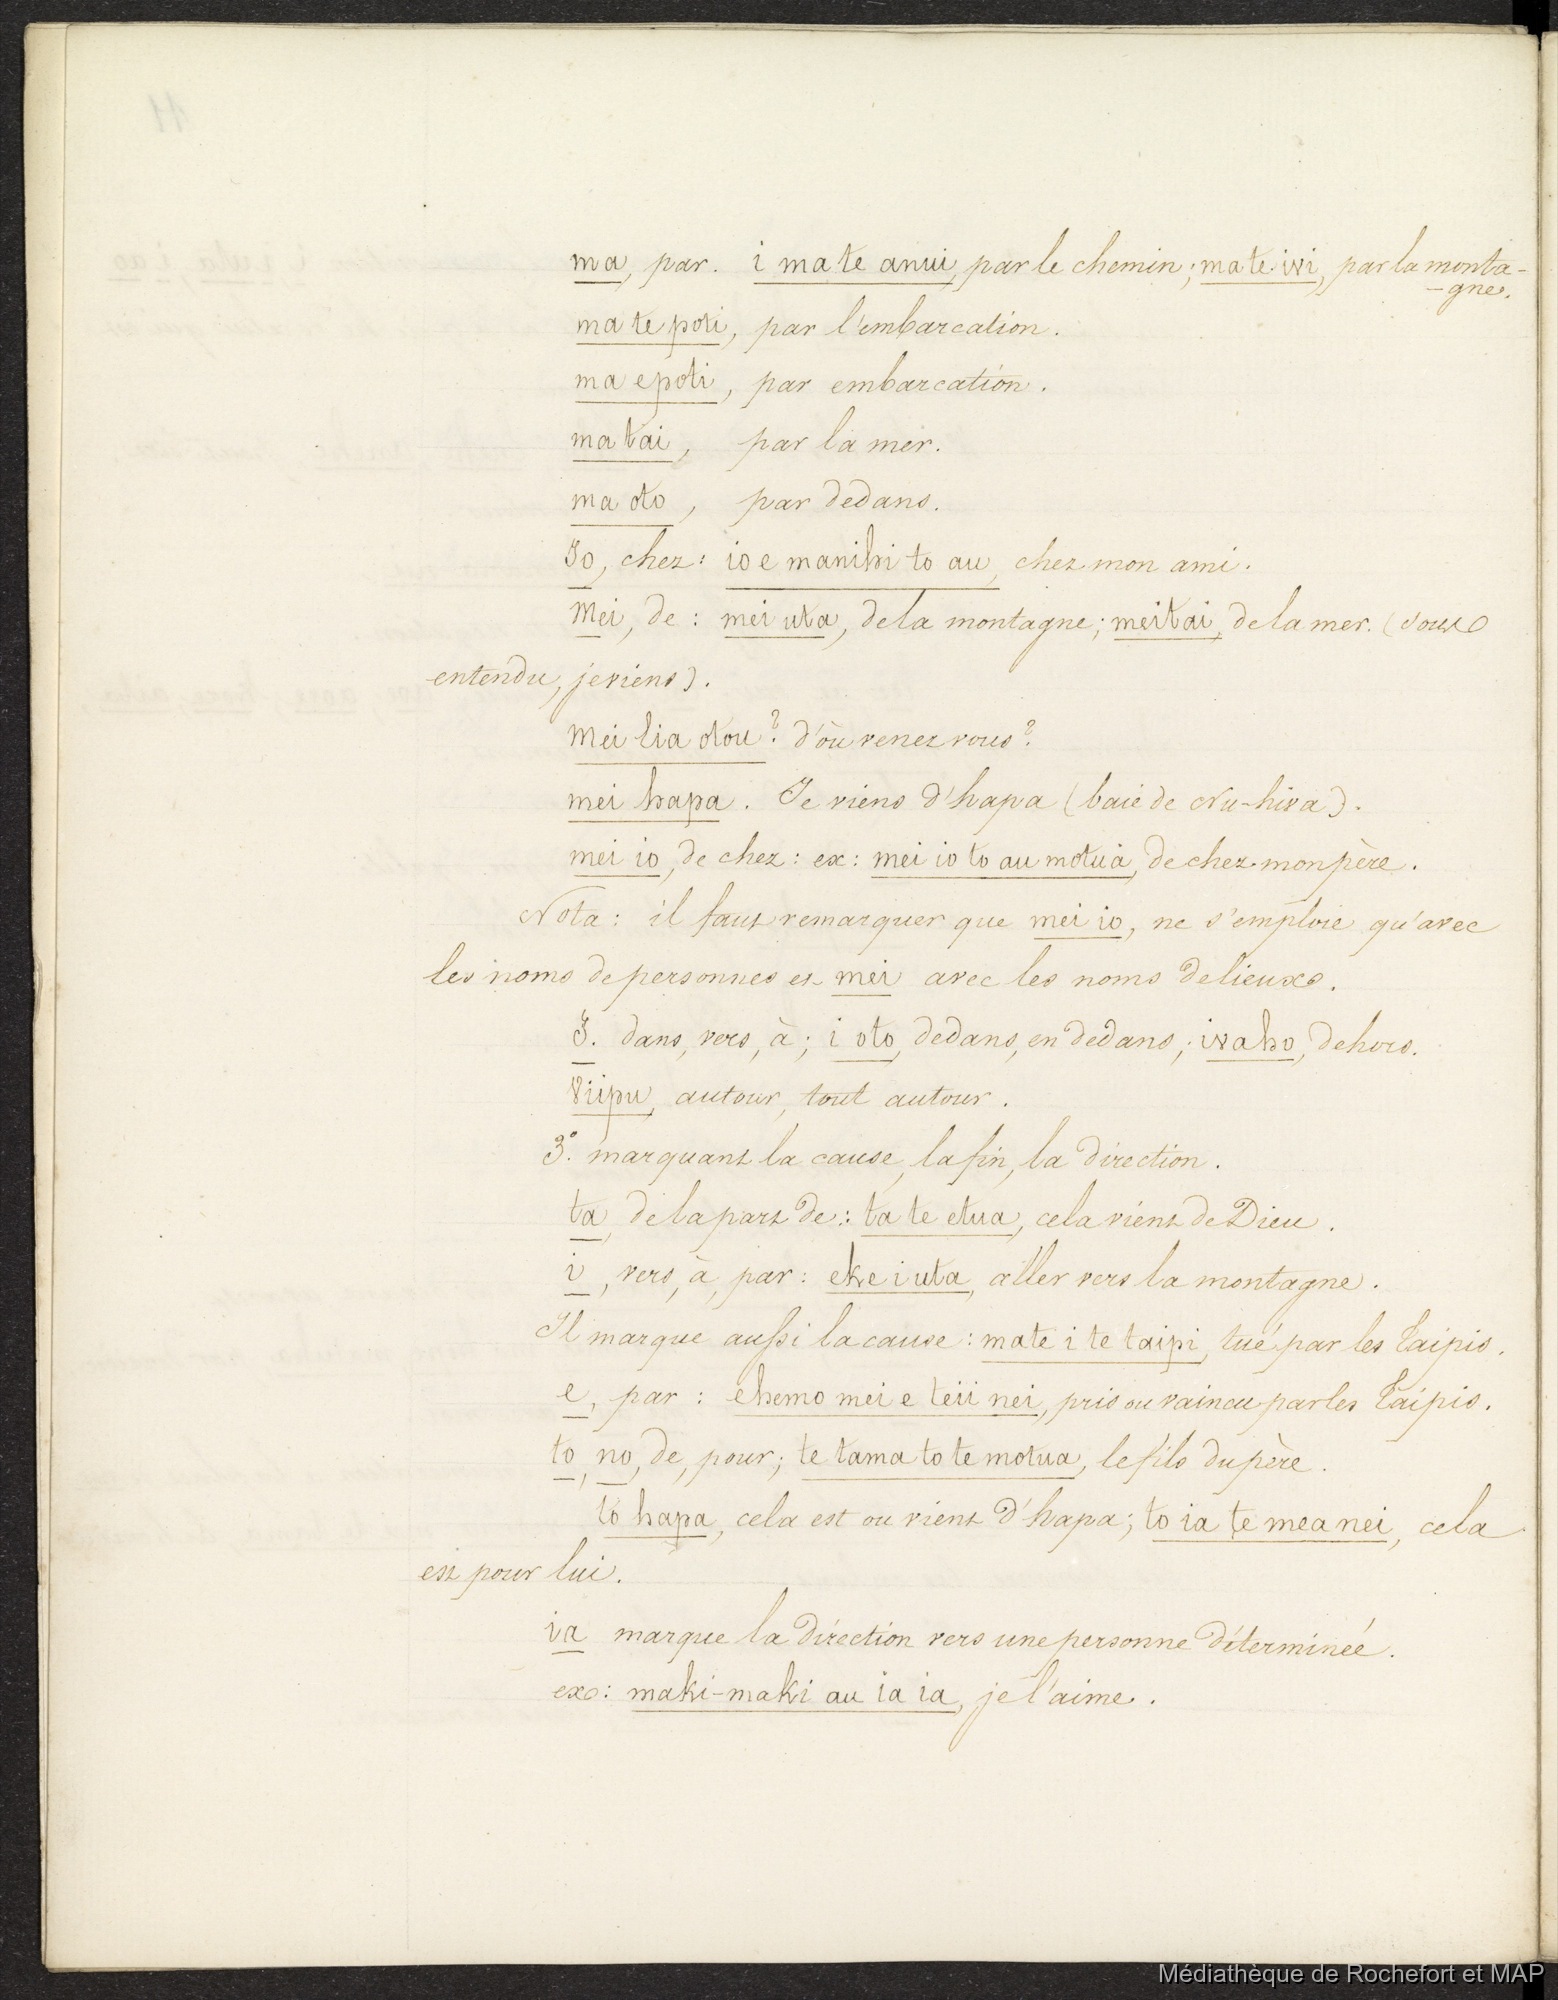 ma, par. i ma te anui, par le chemin; ma te ivi, par la monta-
-gne.
ma te poti, par l'embarcation.
ma e poti, par embarcation.
ma tai, par la mer.
ma oto, par dedans.
Io, chez: io e manihi to au, chez mon ami.
Mei, de: mei uta, de la montagne; mei tai, de la mer. (sous
entendu, je viens).
Mei hia otou? d'où venez vous?
mei hapa. Je viens d'hapa (baie de Nu-hiva).
mei io, de chez: ex: mei io to au motuà, de chez mon père.
Nota: il faut remarquer que mei io, ne s'emploie qu'avec
les noms de personnes et mei avec les noms de lieux.
I. dans, vers, à; i oto, dedans, en dedans; ivaho, dehors.
Viipu, autour, tout autour.
3°. marquant la cause, la fin, la direction.
ta, de la part de: ta te etua, cela vient de Dieu.
i, vers, à, par: eke i uta, aller vers la montagne.
Il marque aussi la cause: mate i te taipi, tué par les Taipis.
e, par: ehemo mei e teii nei, pris ou vaincu par les Taipis.
to, no, de, pour; te tama to te motua, le fils du père.
to hapa, cela est ou vient d'hapa; to ia te mea nei, cela
est pour lui.
ia marque la direction vers une personne déterminée.
ex: maki-maki au ia ia, je l'aime.
11
Médiathèque de Rochefort et MAP